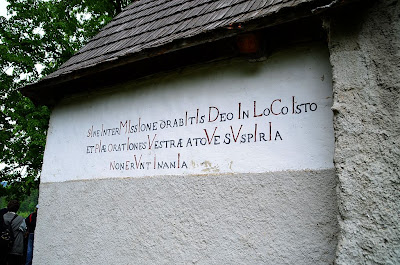 SINE INTERMISSIONE ORABITIS DEO IN LOCO ISTO
ET PIÆ ORATIONES VESTRÆ ATQVE SVSPIRIA
NON ERVNT INANIA